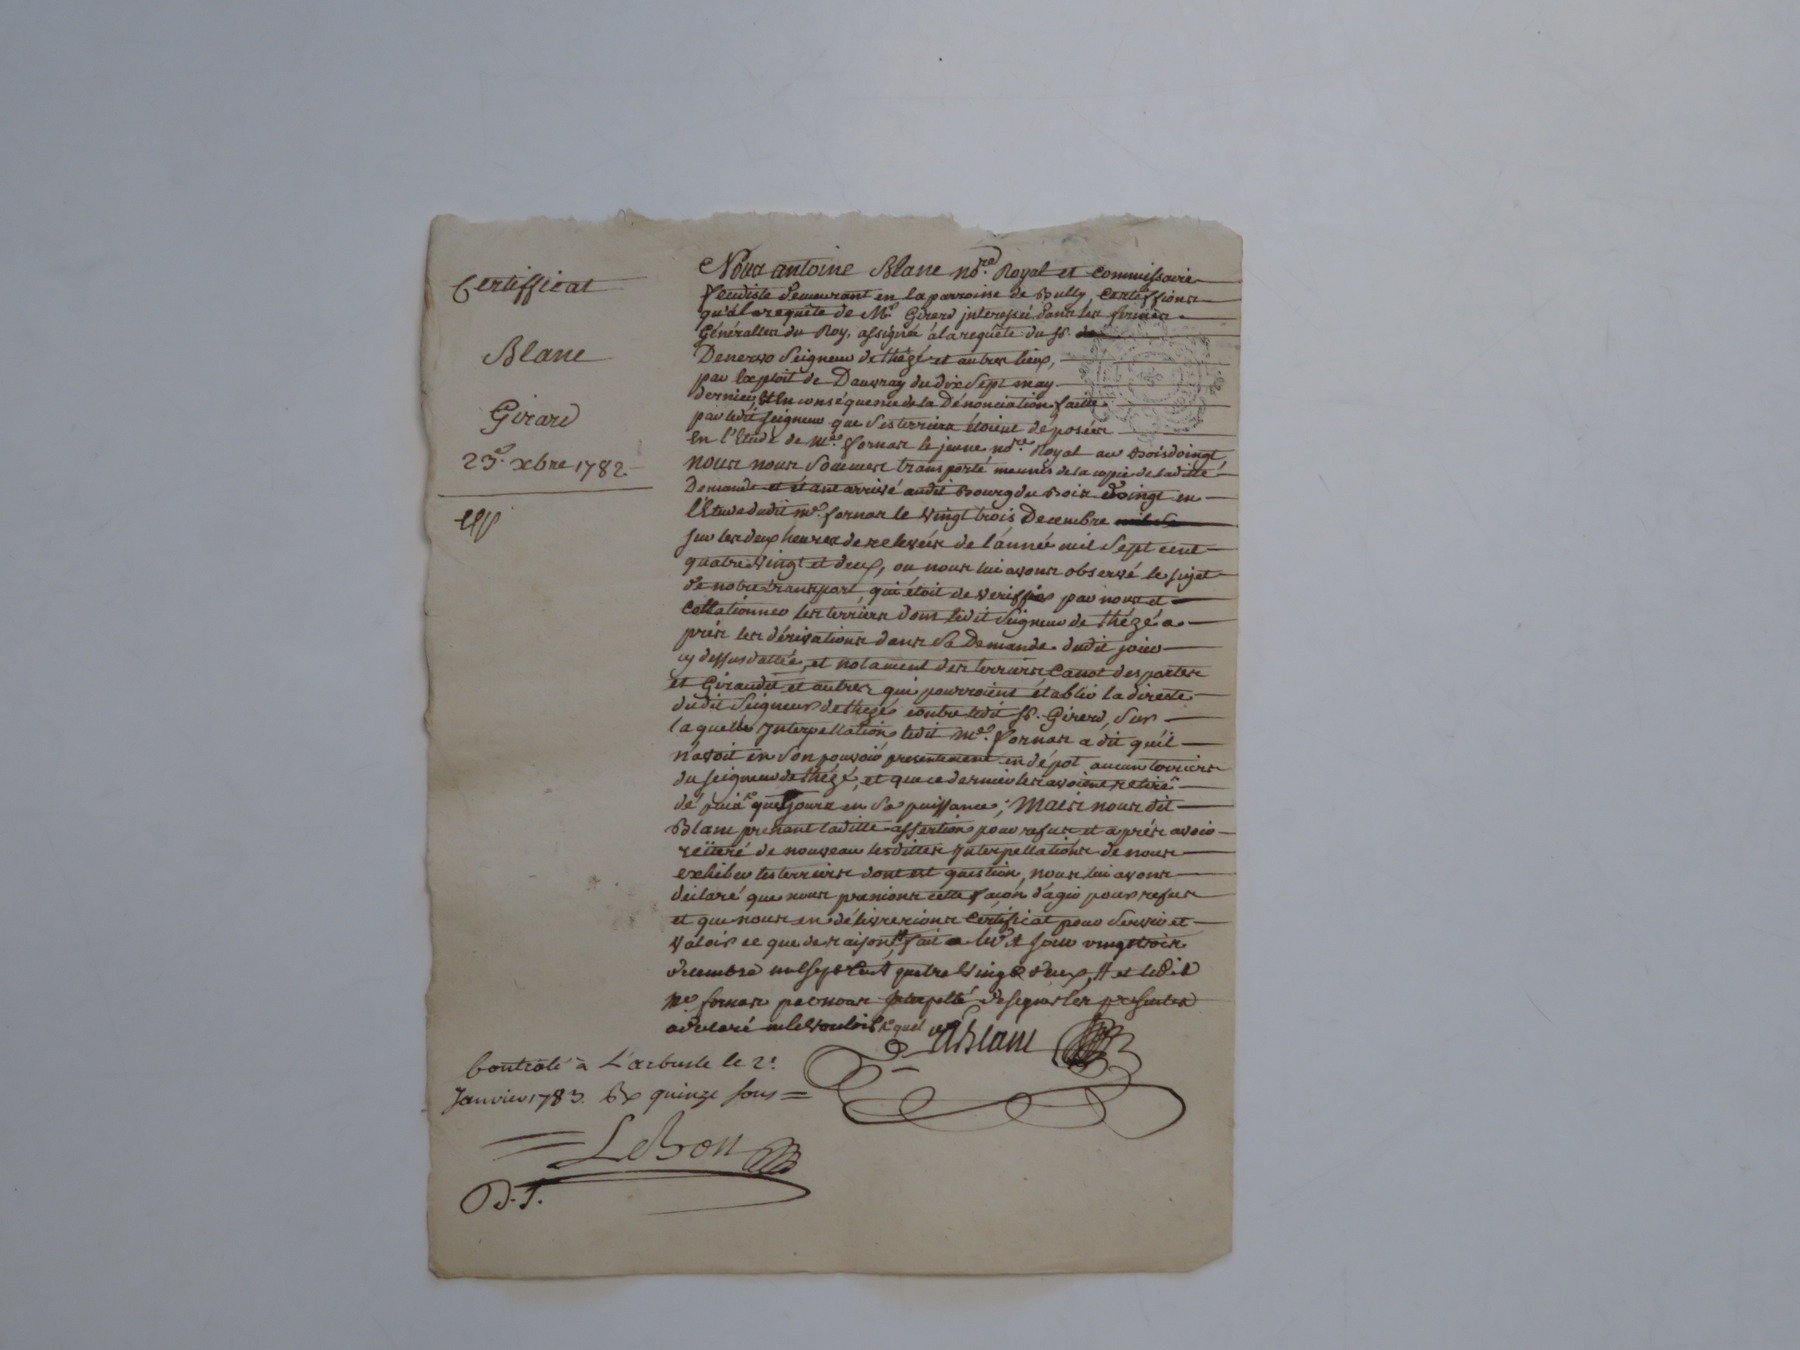 Certifficat
Blanc
Girard
23e. xbre 1782
Nous antoine Blanc nore. Royal et commissaire
feudiste demeurant en la parroisse de Bully, certiffions
qu'à la requête de Mr. Girard jnteressé dans les fermes
Généralles du Roy, assigné à la requête du sr.
Denervo seigneur de thézé et autres lieux,
par Exploit de Dauvray du dix sept may
dernier, et En conséquence de la Dénonciation faitte
par ledit seigneur que ses terriers étoient déposés
en l'Etude de Me. fornas le jeune nore. Royal au Boisdoingt,
nous nous sommes transporté meunis de la copie de laditte
Demande et étant arrivé audit Bourg du Bois doingt en
l'Etude dudit me. fornas le vingt trois Decembre
sur les deux heures de relevées de l'année mil sept cent
quatre vingt et deux, ou nous lui avons observé le sujet
de notre transport qui étoit de veriffier par nous et
collationner les terriers dont ledit seigneur de thézé a
pris les dérivations dans sa Demande dudit jour
cy dessus dattée, et notament des terriers Canot desportes
et Giraudet et autres qui pourroient établir la directe
dudit seigneur de thézé contre ledit sr. Girard, sur
laquelle Jnterpellation ledit Me. fornas a dit qu'il
n'avoit en son pouvoir presentement en dépot aucun terriers
du seigneur de thézé, et que ce dernier les avoient retiré
de puis quelq. jours en sa puissance; Mais nous dit
Blanc prenant laditte assertion pour refus et après avoir
réïteré de nouveau lesdittes Jnterpellations de nous
exhiber les terriers dont est question, nous lui avons
déclaré que nous prenions cette façon d'agir pour refus
et que nous en délivrerions certificat pour servir et
valoir ce que de raison, fait le dit jour vingt trois
decembre mil sept cent quatre vingt deux, et ledit
me. fornas par nous jnterpellé de signer les presentes
a declaré ne le vouloir
Blanc
Controlé à L'arbresle le 2e.
Janvier 1783. Rx quinze sous =
LeBon
D. J.